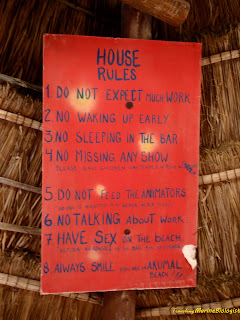 HOUSE
RULES
1. DO NOT EXPECT MUCH WORK
2. NO WAKING UP EARLY
3 NO SLEEPING IN THE BAR
4 NO MISSING ANY SHOW
PLEASE
5. DO NOT FEED THE ANIMATORS
6. NO TALKING ABOUT WORK
7 HAVE SEX ON THE BEACH
8. ALWAYS SMILE YOU ARE IN AKUMAL
BEACH
Traveling MarineBiologist